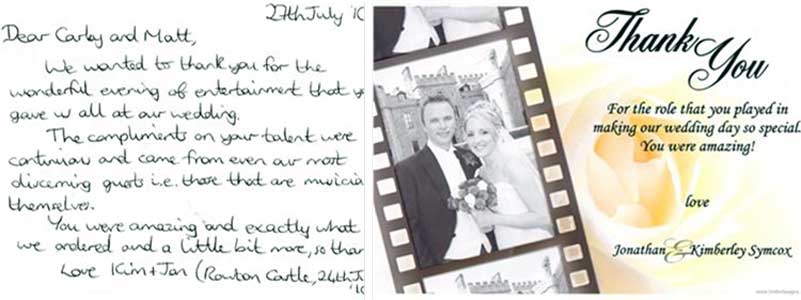 27th July '10
Dear Carley and Matt,
We wanted to thank you for the
wonderful evening of entertainment that
gave us all at our wedding.
The compliments on your talent were
continuous and came from even our most
discerning guests i.e. those that are
themselves.
You were amazing and exactly what
we ordered and a little bit more, so
Love Kim + Jon (Rowton Castle, 24th
Thank
You
For the role that you played in
making our wedding day so special.
You were amazing!
love
Jonathan & Kimberley Symcox